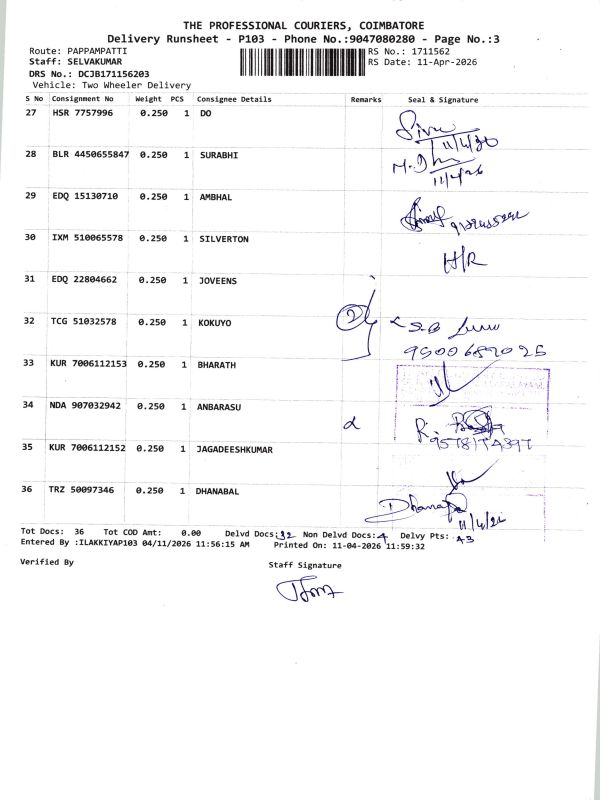 THE PROFESSIONAL COURIERS, COIMBATORE
Delivery Runsheet - P103 - Phone No.:9047080280 - Page No.:3
Route: PAPPAMPATTI RS No.: 1711562
Staff: SELVAKUMAR RS Date: 11-Apr-2026
DRS No.: DCJB171156203
Vehicle: Two Wheeler Delivery
S No Consignment No Weight PCS Consignee Details Remarks Seal & Signature
27 HSR 7757996 0.250 1 DO
28 BLR 4450655847 0.250 1 SURABHI
29 EDQ 15130710 0.250 1 AMBHAL
30 IXM 510065578 0.250 1 SILVERTON H/R
31 EDQ 22804662 0.250 1 JOVEENS
32 TCG 51032578 0.250 1 KOKUYO
33 KUR 7006112153 0.250 1 BHARATH
34 NDA 907032942 0.250 1 ANBARASU
35 KUR 7006112152 0.250 1 JAGADEESHKUMAR
36 TRZ 50097346 0.250 1 DHANABAL
Tot Docs: 36 Tot COD Amt: 0.00 Delvd Docs: 32 Non Delvd Docs: 4 Delvy Pts:
Entered By :ILAKKIYAP103 04/11/2026 11:56:15 AM Printed On: 11-04-2026 11:59:32
Verified By Staff Signature